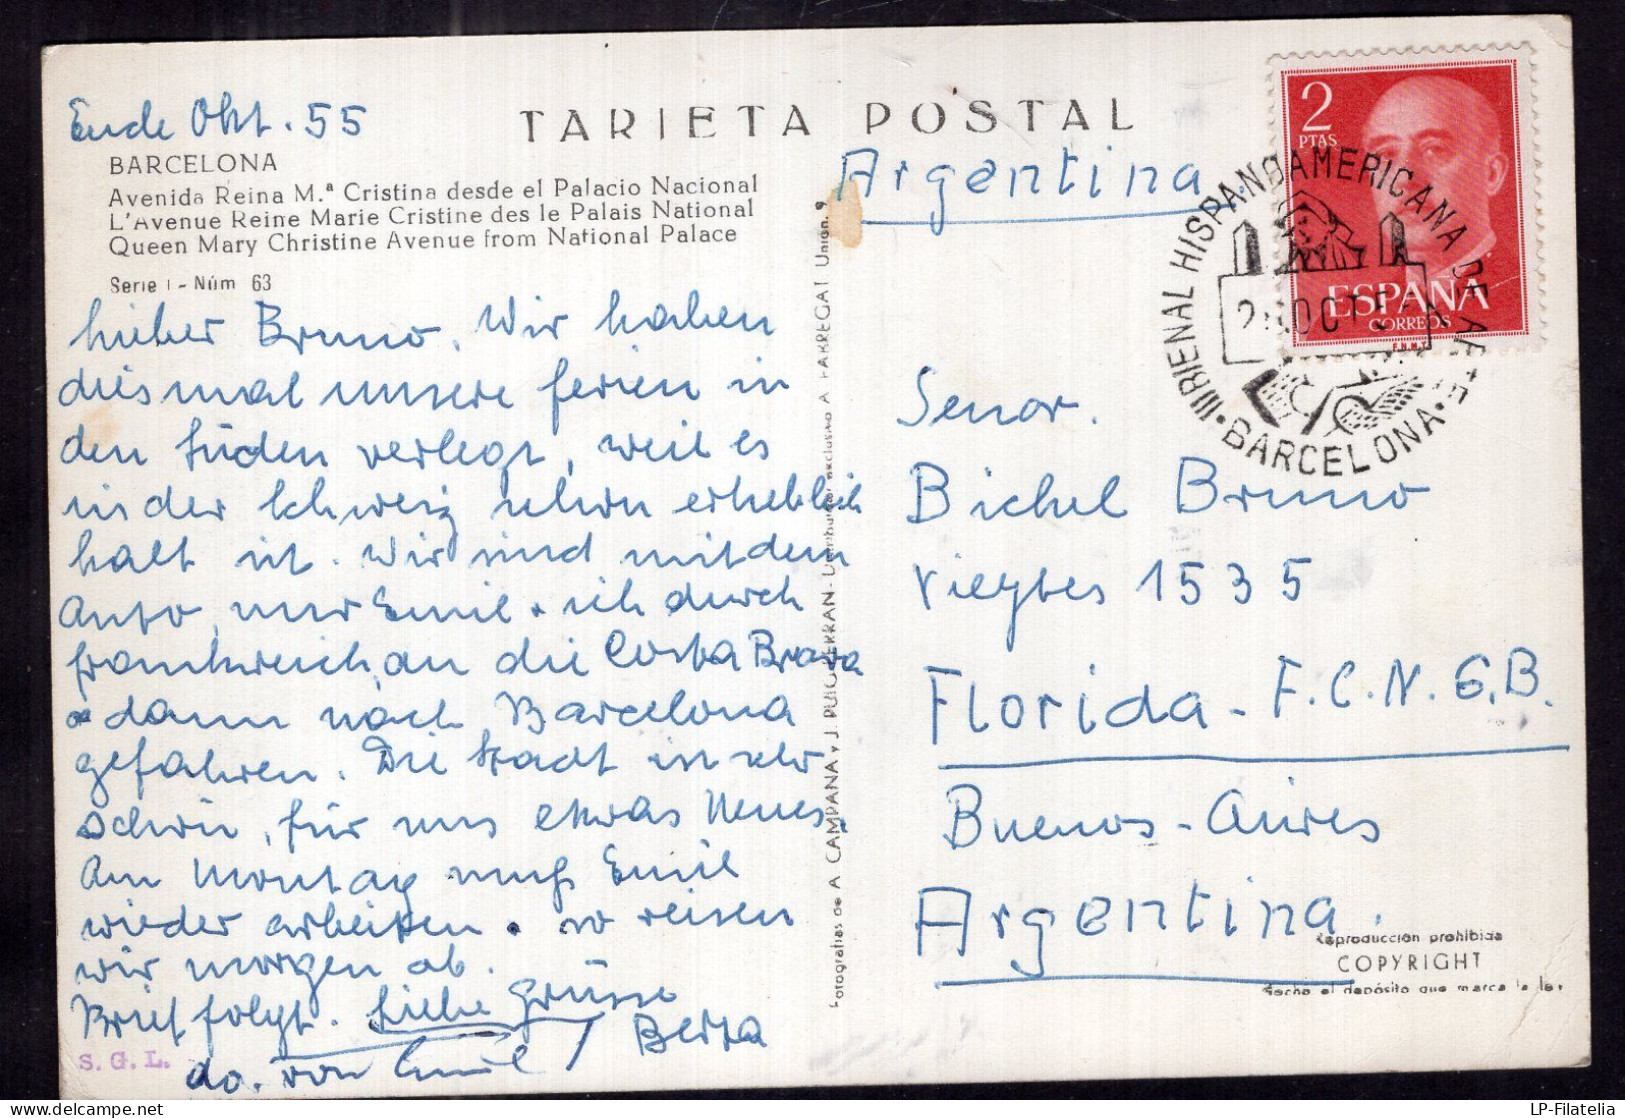 Ende Okt. 55
TARJETA POSTAL
BARCELONA
Avenida Reina M.ª Cristina desde el Palacio Nacional
L'Avenue Reine Marie Cristine des le Palais National
Queen Mary Christine Avenue from National Palace
Serie I - Núm 63
Lieber Bruno. Wir haben
diesmal unsere ferien in
den Süden verlegt, weil es
in der Schweiz schon erheblich
kalt ist. Wir sind mit dem
Auto, nur Emil + ich durch
frankreich an die Costa Brava
+ dann nach Barcelona
gefahren. Die Stadt ist sehr
Schön, für uns etwas Neues.
Am Montag muss Emil
wieder arbeiten. so reisen
wir morgen ab.
Brief folgt. Liebe Grüsse
Berta
do. von Emil
S. G. L.
Fotografias de A CAMPANA y J. PUIG FERRAN - Distribuidor exclusivo A FABREGAT Unión, 9
Argentina.
2
PTAS
ESPAÑA
CORREOS
F.N.M.T
III BIENAL HISPANOAMERICANA DE ARTE
BARCELONA
OCT
Senor.
Bichel Bruno
Vieytes 1535
Florida - F.C.N.G.B.
Buenos-Aires
Argentina.
Reproducción prohibida
COPYRIGHT
Hecho el depósito que marca la ley
LP-Filatelia